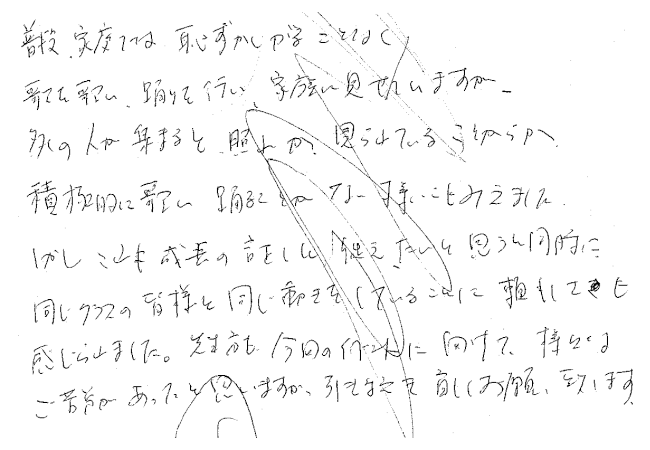 普段、家庭では恥ずかしがることなく
歌を歌い、踊りを行い、家族に見せていますが、
多くの人が集まると、照れか、見られている
積極的に歌い踊ることがない様にもみえました。
しかしこれも成長の証として捉えたいと思うと同時に
同じクラスの皆様と同じ動きをしていることに頼もしさも
感じられました。先生方も今回のイベントに向けて、様々な
ご苦労があったと思いますが、引き続き宜しくお願い致します。